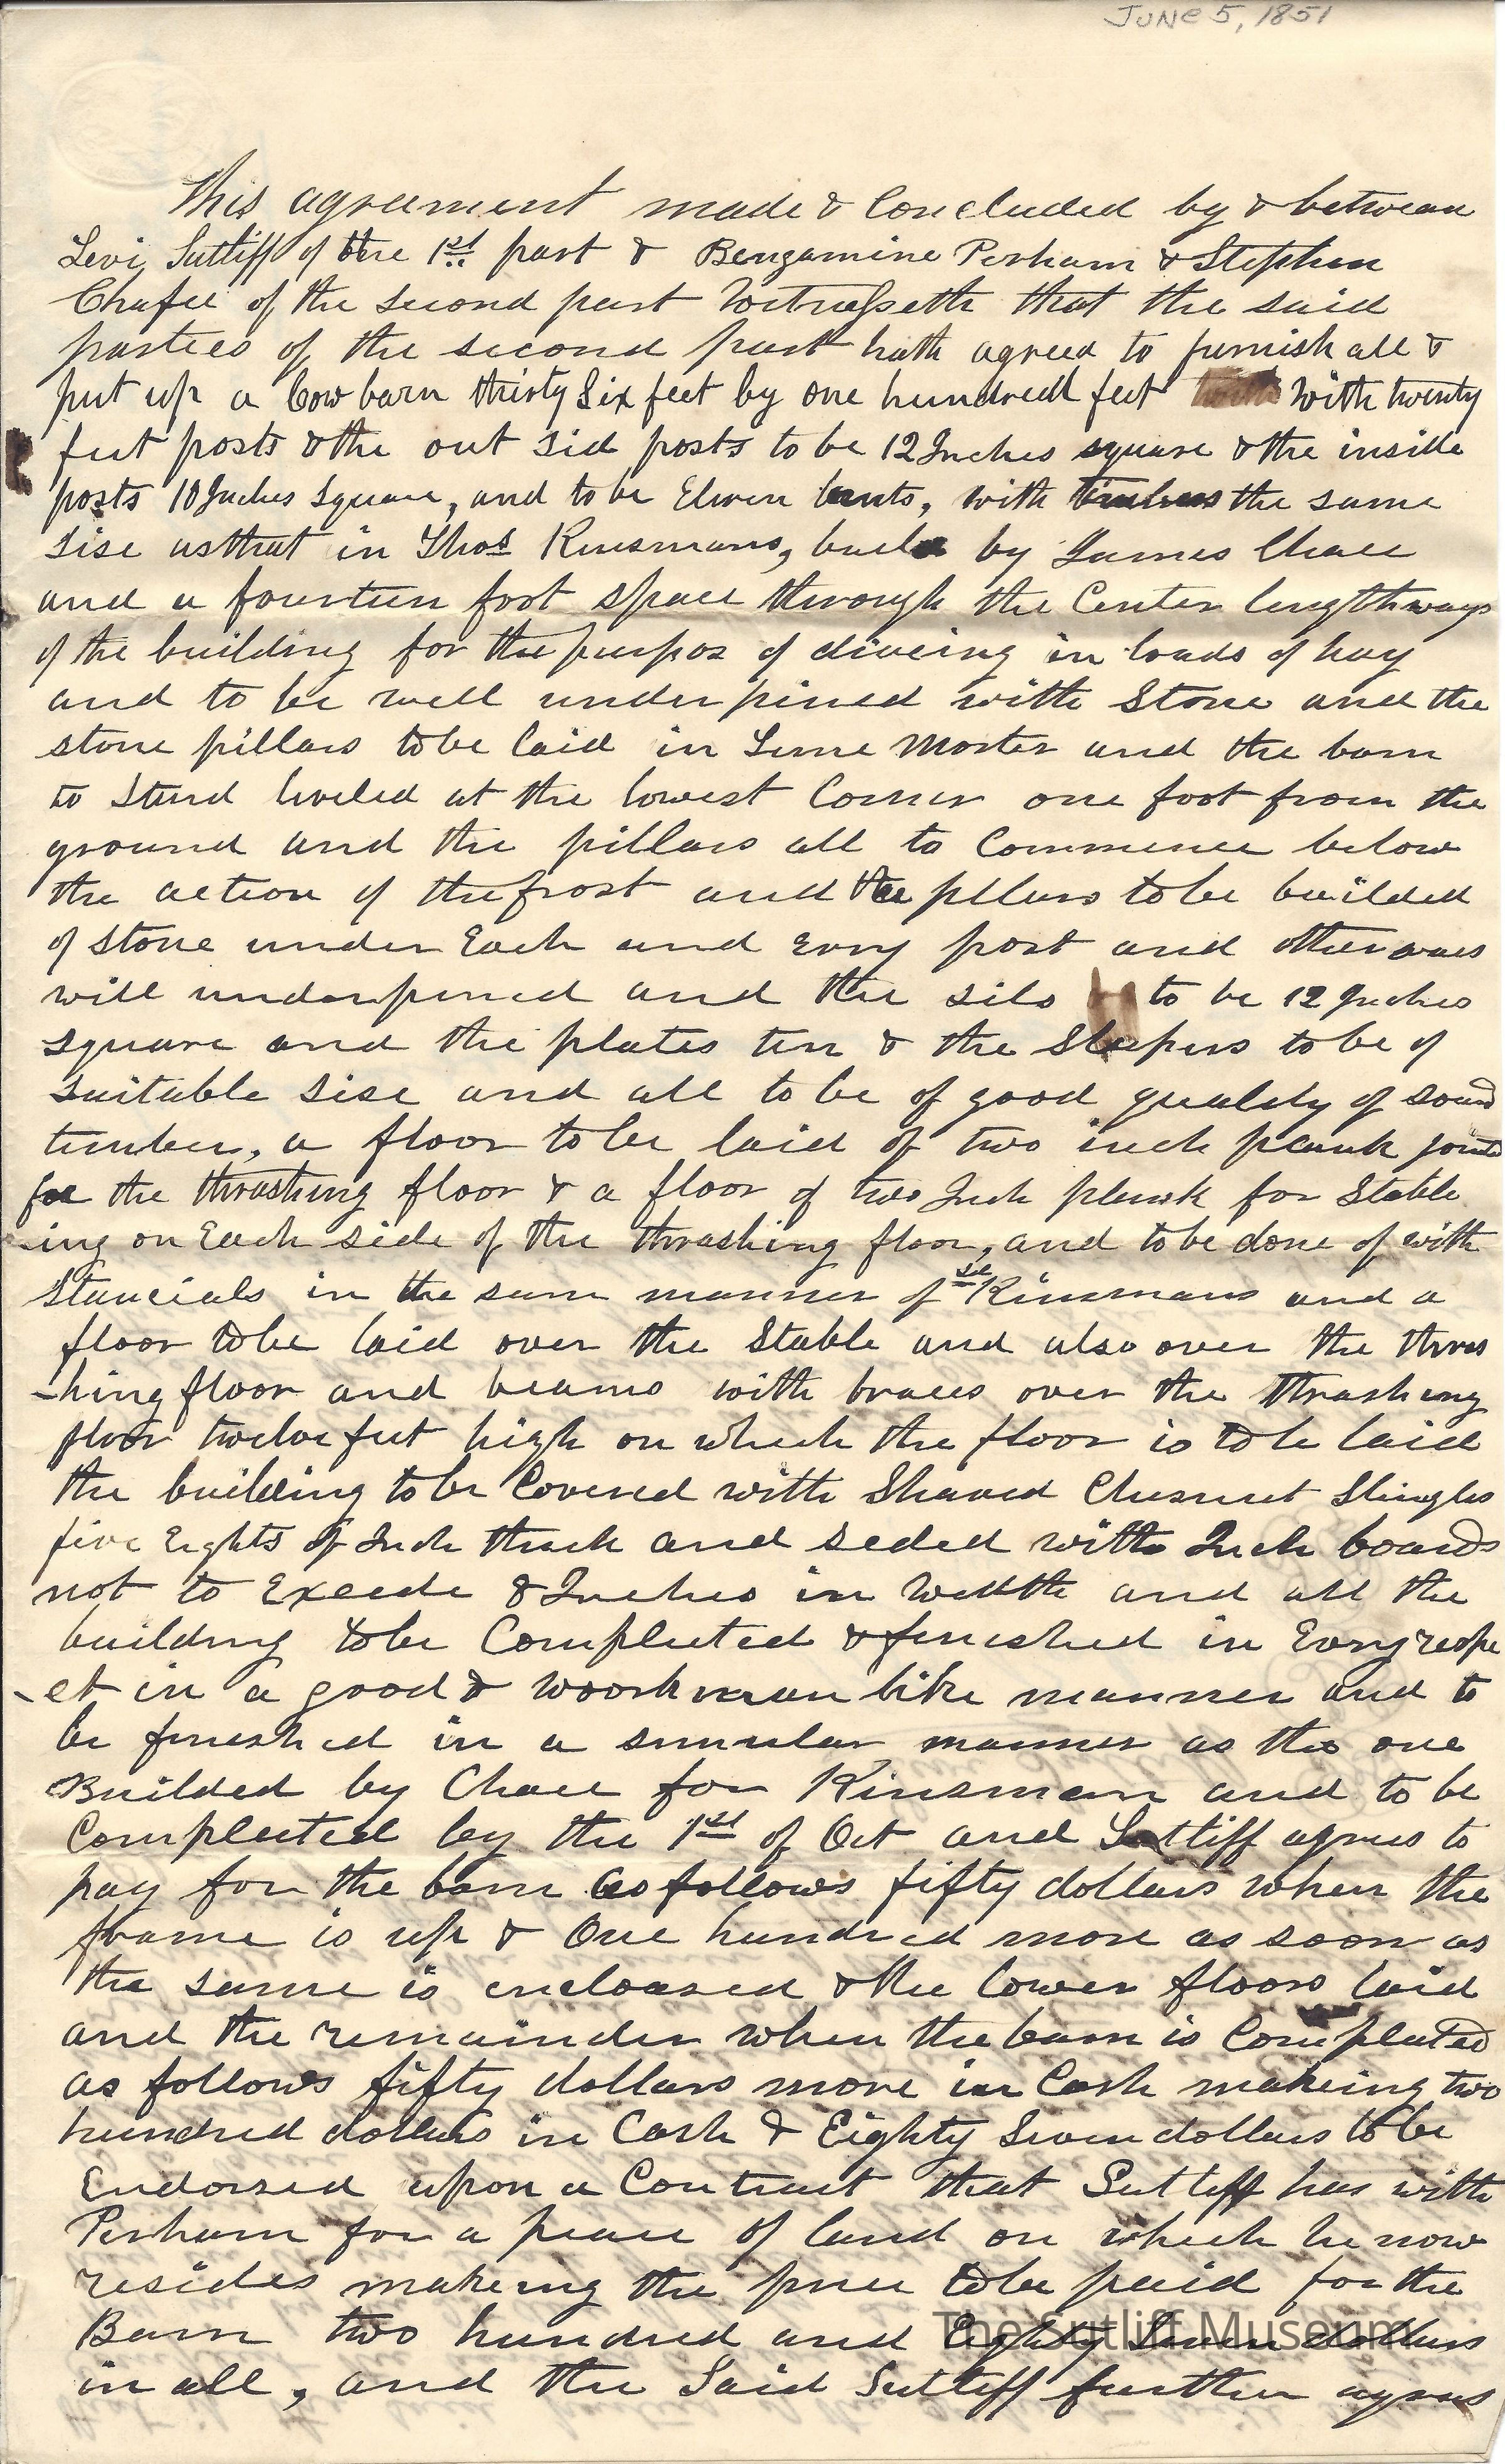 JUNE 5, 1851
This agreement made & Concluded by & between
Levi Sutliff of the 1st part & Bengamine Perham & Stephen
Chafee of the second part Witnesseth that the said
parties of the second part hath agreed to furnish all &
put up a Cow barn thirty Six feet by one hundred feet With twenty
feet posts & the out sid posts to be 12 Inches square & the inside
posts 10 Inches Square, and to be Eleven bents, with timbers the same
sise as that in Thos Kinsmans, build by James Chace
and a fourteen foot space through the Center lengthways
of the building for the purpos of driveing in loads of hay
and to be well under pined with Stone and the
stone pillars to be laid in Lime Morter and the barn
to Stand leveled at the lowest Corner one foot from the
ground and the pillars all to Commence below
the action of the frost and the pllars to be builded
of stone under Each and Evry post and otherways
will underpined and the sils to be 12 Inches
square and the plates ten & the Sleepers to be of
suitable sise and all to be of good qualety of sound
timber, a floor to be laid of two inch plank
for the thrashing floor & a floor of two Inch plank for Stable
-ing on Each side of the thrashing floor, and to be done of with
Stancials in the sam manner of sd Kinsmans and a
floor to be laid over the Stable and also over the thras
-hing floor and beams with braces over the thrashing
floor twelve feet high on which the floor is to be laid
the building to be Covered with Shaved Chesnut Shingles
five Eights of Inch thick and sided with Inch boards
not to Exeede 8 Inches in Width and all the
building to be Compleeted & finished in Evry respe
-ct in a good & woorkman like manner and to
be finished in a simular manner as the one
Builded by Chace for Kinsman and to be
Compleeted by the 1st of Oct and Sutliff agrees to
pay for the barn as follows fifty dollars when the
frame is up & One hundred more as soon as
the same is encloased & the lower floors laid
and the remainder when the barn is Compleated
as follows fifty dollars more in Cash makeing two
hundred dollars in Cash & Eighty Seven dollars to be
Endorsed upon a Contract that Sutliff has with
Perham for a peace of land on which he now
resides makeing the price to be paid for the
Barn two hundred and Eighty Seven dollars
in all, and the Said Sutliff further agrees
The Sutliff Museum